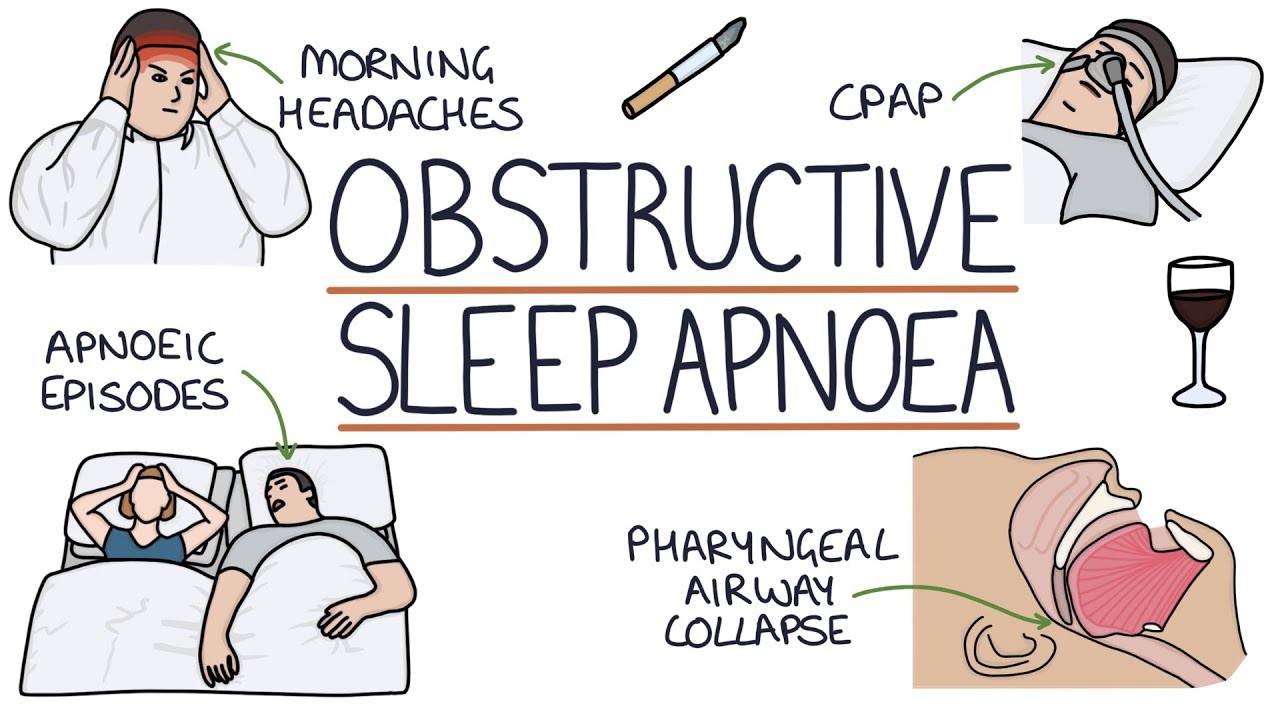 MORNING
HEADACHES
CPAP
OBSTRUCTIVE
SLEEP APNOEA
APNOEIC
EPISODES
PHARYNGEAL
AIRWAY
COLLAPSE